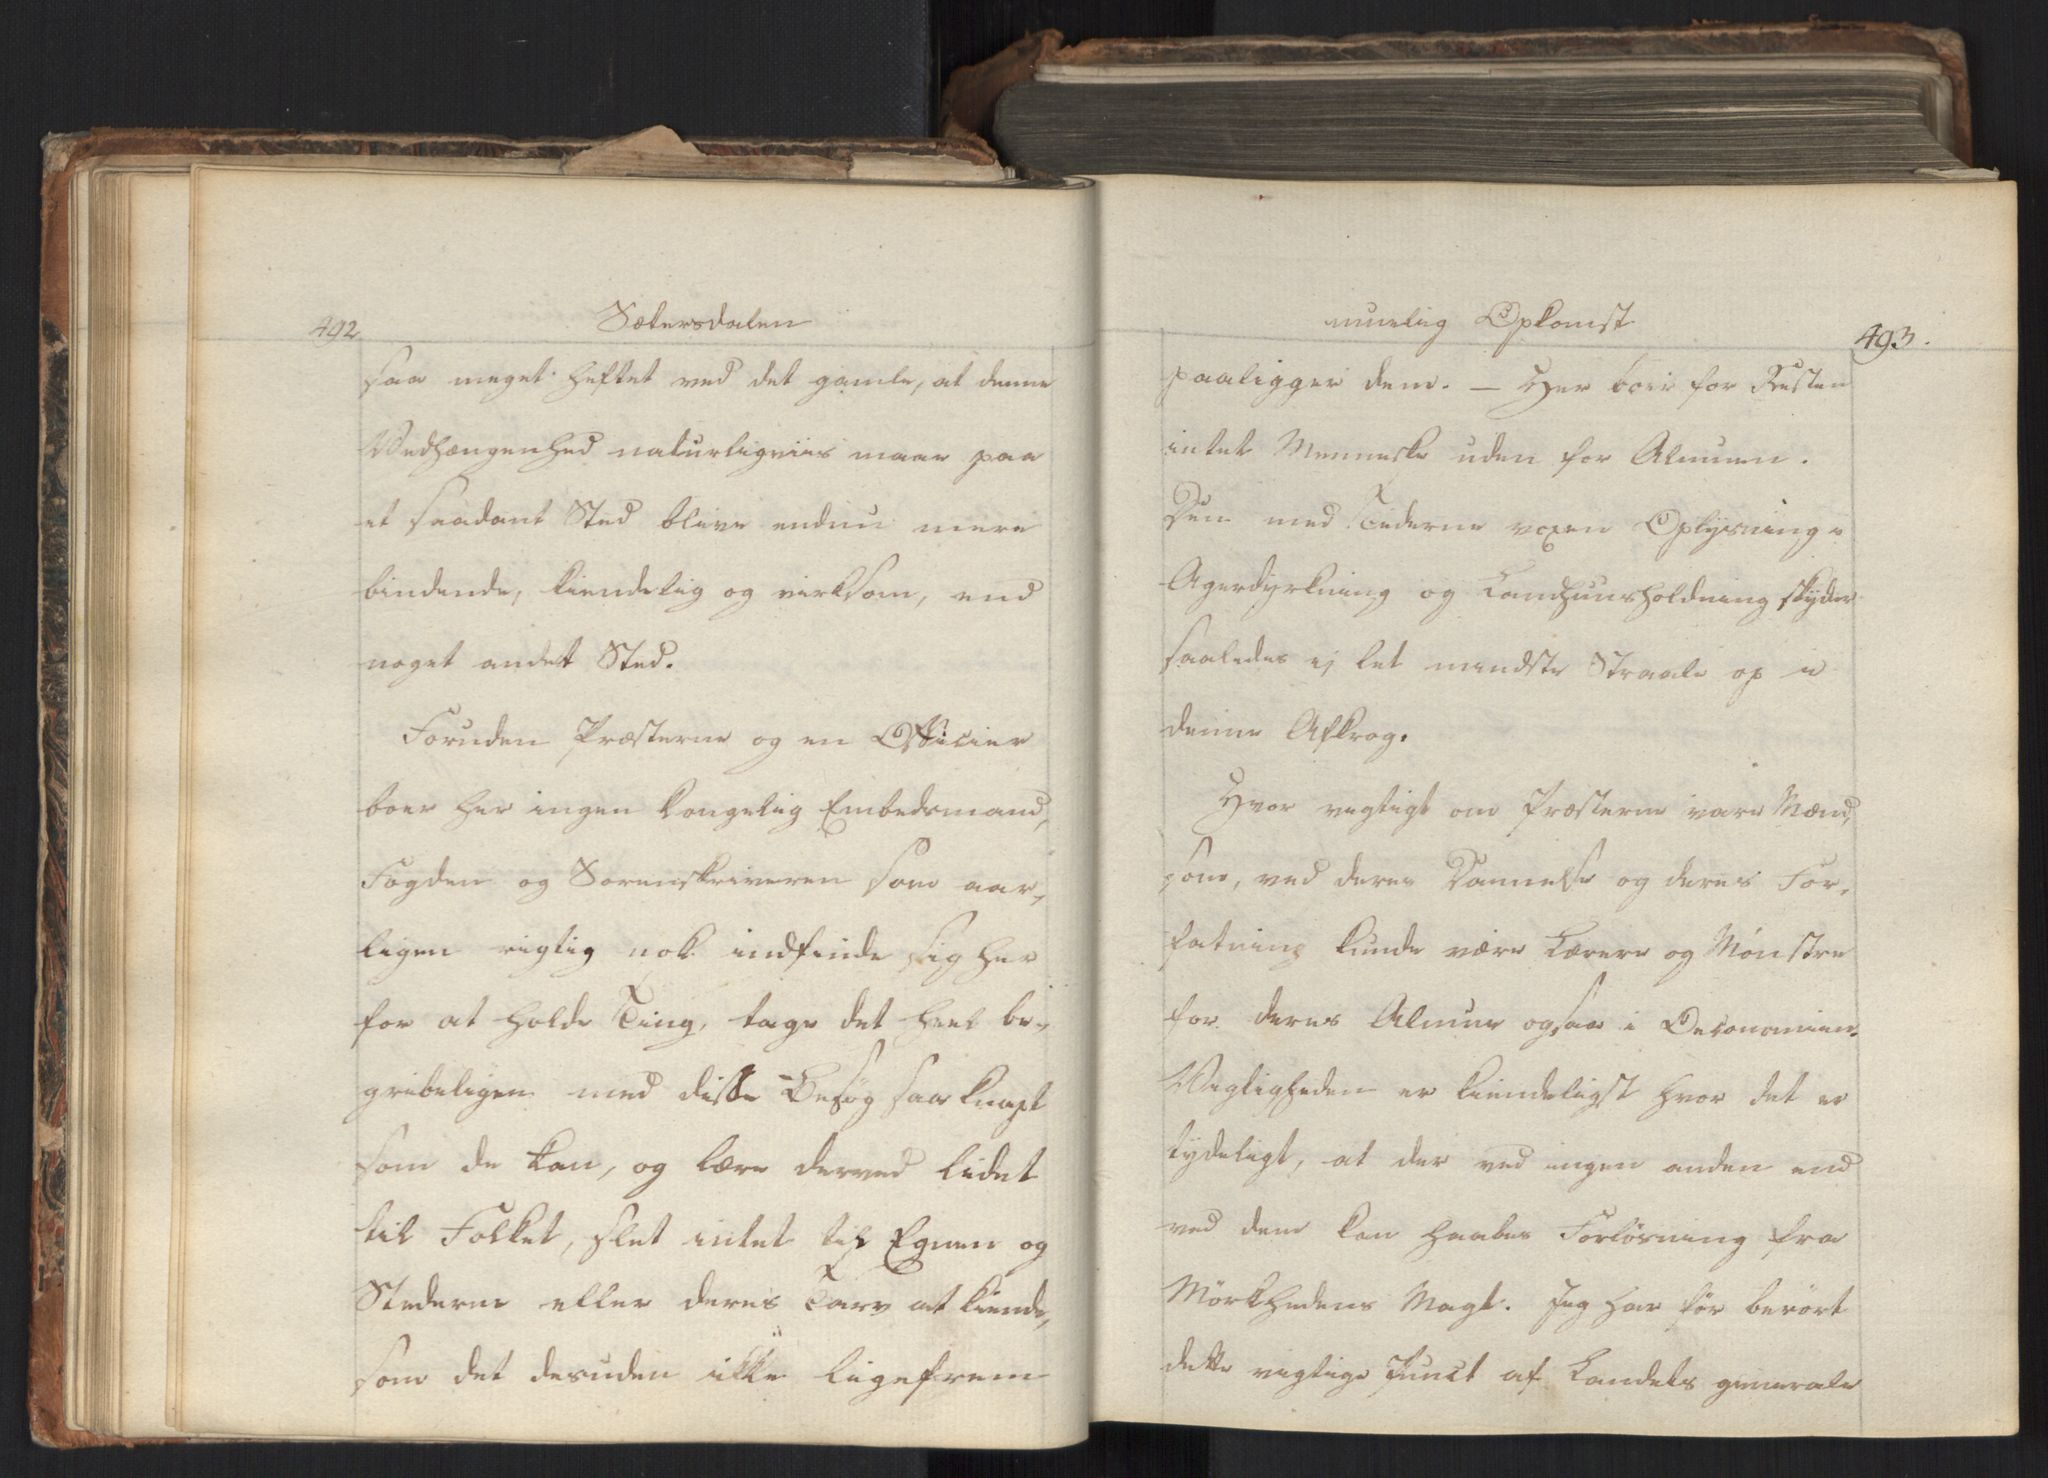 492
Sætersdalen
saa meget heftet ved det gamle, at denne
Vedhængenhed naturligviis maae paa
et saadant Sted blive endnu mere
bindende, kiendelig og virksom, end
noget andet Sted.
Foruden Præsterne og en Officier
boer her ingen kongelig Embedsmand,
Fogden og Sorenskriveren som aar-
ligen rigtig nok indfinde sig her
for at holde Ting, tage det heel be-
gribeligen med disse Besøg saa knapt
som de kan, og lære derved lidet
til Folket, slet intet til Egnen og
Stederne eller deres Tarv at kiende,
som det desuden ikke ligefrem
muelig Opkomst
493.
paaligger dem. — Her boer for Resten
intet Menneske uden for Almuen.
Den med Tiderne voxen Oplysning i
Agerdyrkning og Landhuusholdning skyder
saaledes ej let mindste Straale op i
denne Afkrog.
Hvor vigtigt om Præsterne vare Mænd,
som, ved deres Dannelse og deres For-
fatning kunde være Lærere og Mönstre
for deres Almue ogsaa i Oeconomien.
Vigtigheden er kiendeligst hvor det er
tydeligt, at der ved ingen anden end
ved dem kan haabes Forlösning fra
Mörkhedens Magt. Jeg har för berört
dette vigtige Punct af Landets generale